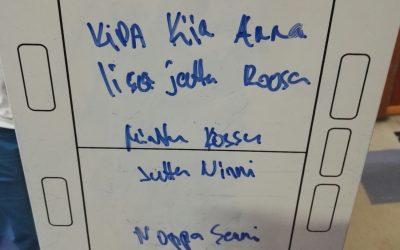 KiPA Kiia Anna
liisa jutta Roosa
Minttu Roosa
Jutta Ninni
Noppa Senni